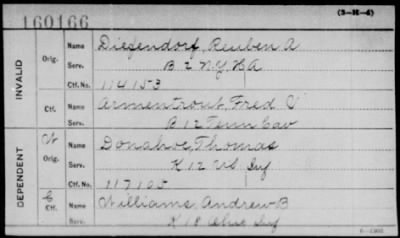 (3-H-6)
160166
INVALID
Orig.
Name Diefendorf, Reuben A
Serv. B 2 N.Y. H A
Ctf. No. 114153
Ctf.
Name Armentrout, Fred V
Serv. B 12 Tenn Cav
DEPENDENT
W
Orig.
Name Donahoe, Thomas
Serv. K 12 US Inf
Ctf. No. 117105
C
Ctf.
Name Williams, Andrew B
Serv. K 18 Ohio Inf